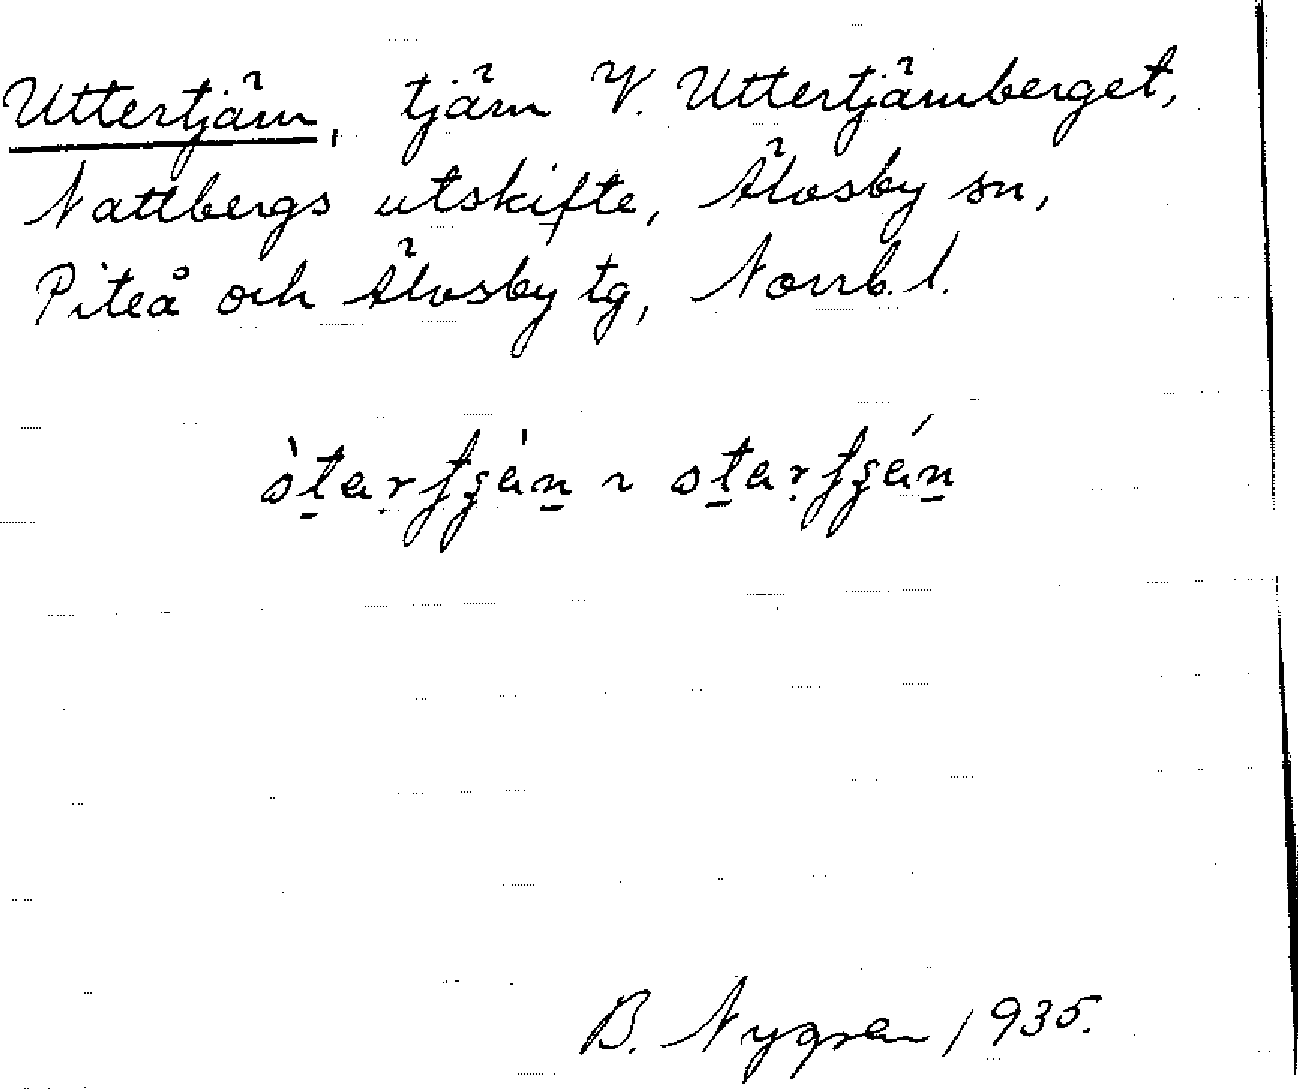 Uttertjärn, tjärn V. Uttertjärnberget,
Nattbergs utskifte, Älvsby sn,
Piteå och Älvsby tg, Norrb. l.
B. Nygren 1935.